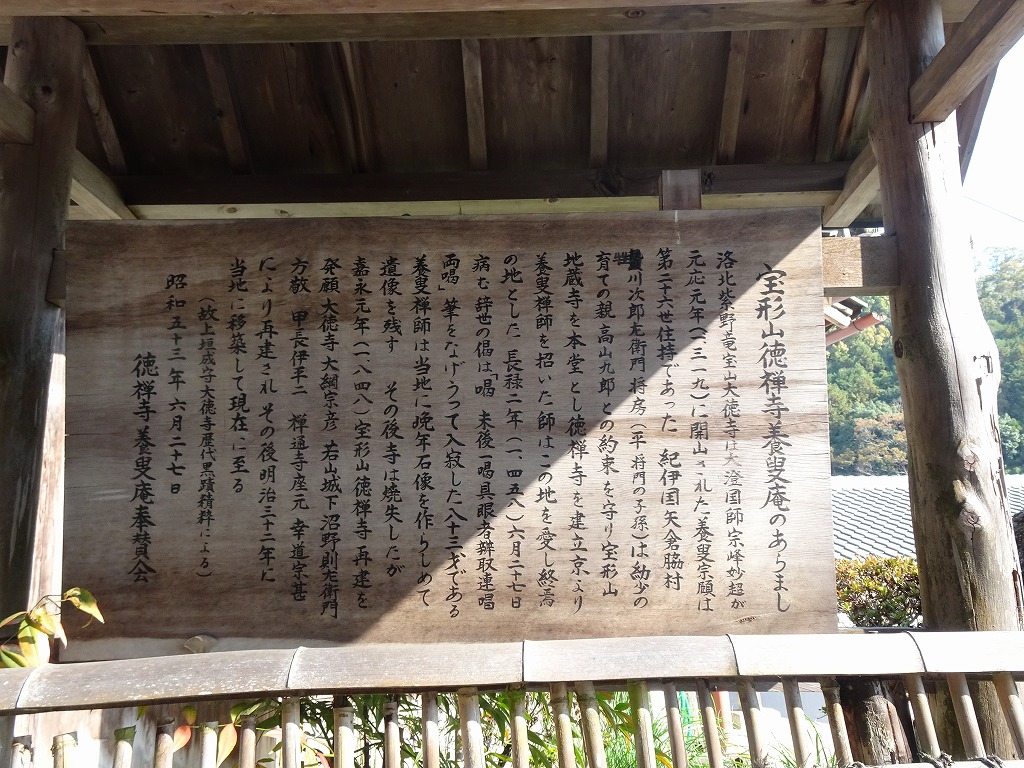 宝形山徳禅寺養叟庵のあらまし
洛北紫野竜宝山大徳寺は大澄国師宗峰妙超が
元応元年(一三一九)に開山された養叟宗頤は
第二十六世住持であった 紀伊国矢倉脇村
牲川次郎左衛門将房(平将門の子孫)は幼少の
育ての親高山九郎との約束を守り宝形山
地蔵寺を本堂とし徳禅寺を建立京より
養叟禅師を招いた師はこの地を愛し終焉
の地とした 長禄二年(一、四五八)六月二十七日
病む辞世の偈は「喝 末後一喝具眼者辯取連喝
両喝」筆をなげうって入寂した八十三才である
養叟禅師は当地に晩年石像を作らしめて
遺像を残す その後寺は焼失したが
嘉永元年(一、八四八)宝形山徳禅寺再建を
発願 大徳寺 大綱宗彦 若山城下沼野則左衛門
方敬 甲長伊平二 禅通寺座元 幸道宗甚
により再建され その後明治三十二年に
当地に移築して現在に至る
(故上垣成守大徳寺歴代黒蹟精粋による)
昭和五十三年六月二十七日
徳禅寺養叟庵奉賛会